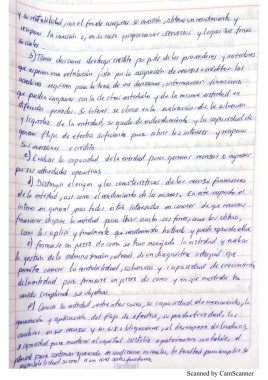 y su rentabilidad, con el fin de asegurar su inversión, obtener un rendimiento y
recuperar la inversión o, en su caso proporcionar servicios y lograr sus fines
sociales.
b) Tomar decisiones de otorgar crédito por parte de los proveedores y acreedores
que esperan una retribución justa por la asignación de recursos o créditos. Los
acreedores requieren para la toma de sus decisiones, información financiera
que puedan comparar con la de otras entidades y de la misma entidad en
diferentes periodos. Su interés se ubica en la evaluación de la solvencia
y liquidez de la entidad, su grado de endeudamiento y la capacidad de
generar flujos de efectivo suficientes para cubrir los intereses y recuperar
sus inversiones o crédito.
c) Evaluar la capacidad de la entidad para generar recursos o ingresos
por sus actividades operativas.
d) Distinguir el origen y las características de los recursos financieros
de la entidad, así como el rendimiento de los mismos. En este aspecto el
interés es general pues todos están interesados en conocer de que recursos
financieros dispone la entidad para llevar a cabo sus fines, como los obtuvo,
como los aplicó y finalmente que rendimiento ha tenido y puede esperar de ellos.
e) formarse un juicio de como se ha manejado la entidad y evaluar
la gestión de la administración, a través de un diagnóstico integral que
permita conocer la rentabilidad, solvencia y capacidad de crecimiento
de la entidad para formarse un juicio de como y en qué medida ha
venido cumpliendo sus objetivos.
f) Conocer la entidad, entre otras cosas, su capacidad de crecimiento, la
generación y aplicación del flujo de efectivo, su productividad, los
cambios en sus recursos y en sus obligaciones, el desempeño de la administración,
su capacidad para mantener el capital contable o patrimonio contable, el
potencial para continuar operando en condiciones normales, la facultad para cumplir su
responsabilidad social a un nivel satisfactorio.
Scanned by CamScanner